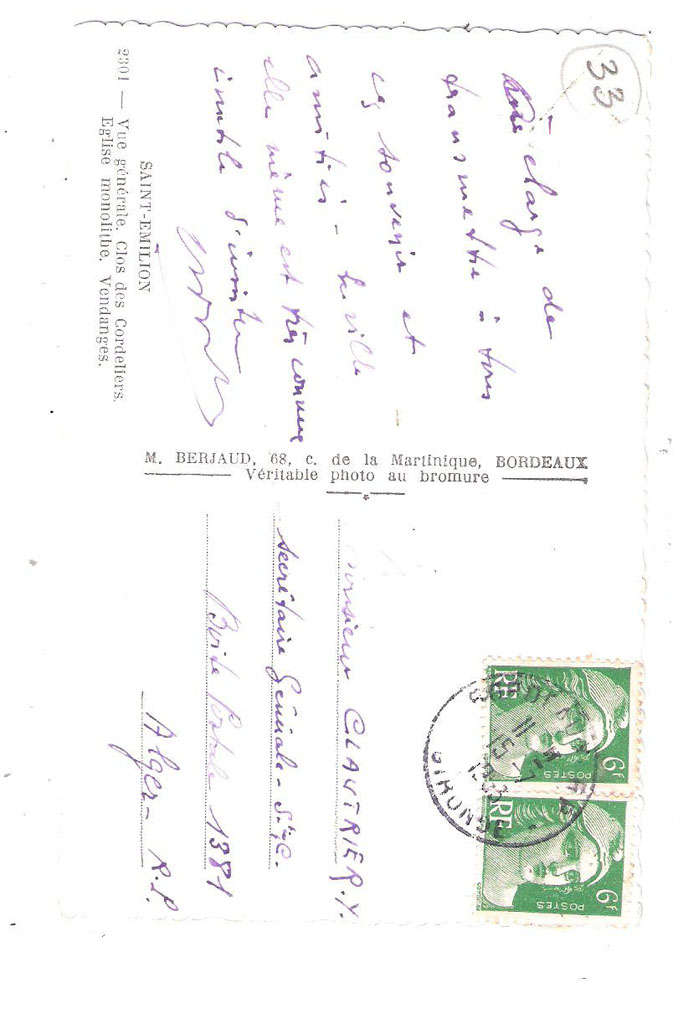 33
chargé de
transmettre à tous
ces souvenirs et
amitiés - la ville
elle même est très connue
inutile d'insister
SAINT-EMILION
2301 — Vue générale. Clos des Cordeliers.
Eglise monolithe. Vendanges.
M. BERJAUD, 68, c. de la Martinique, BORDEAUX
Véritable photo au bromure
Monsieur CLAUTRIER.Y.
Secrétaire Générale - Sté G.
Boite Postale 1381
Alger - R.P.
RF
POSTES
6F
RF
POSTES
6F
GIRONDE